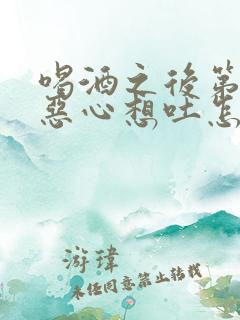 喝酒之后第
恶心想吐怎
游瑋
未经同意禁止转载